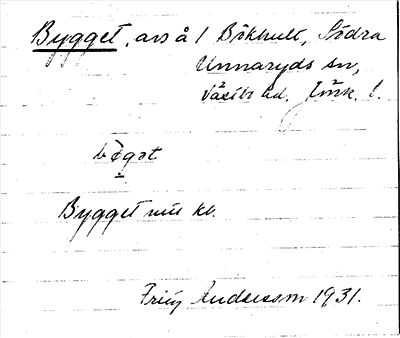 Bygget, avs å 1 Bökhult, Södra
Unnaryds sn,
Västbo hd. Jönk. l.
Bygget mu kl.
Andersson 1931.